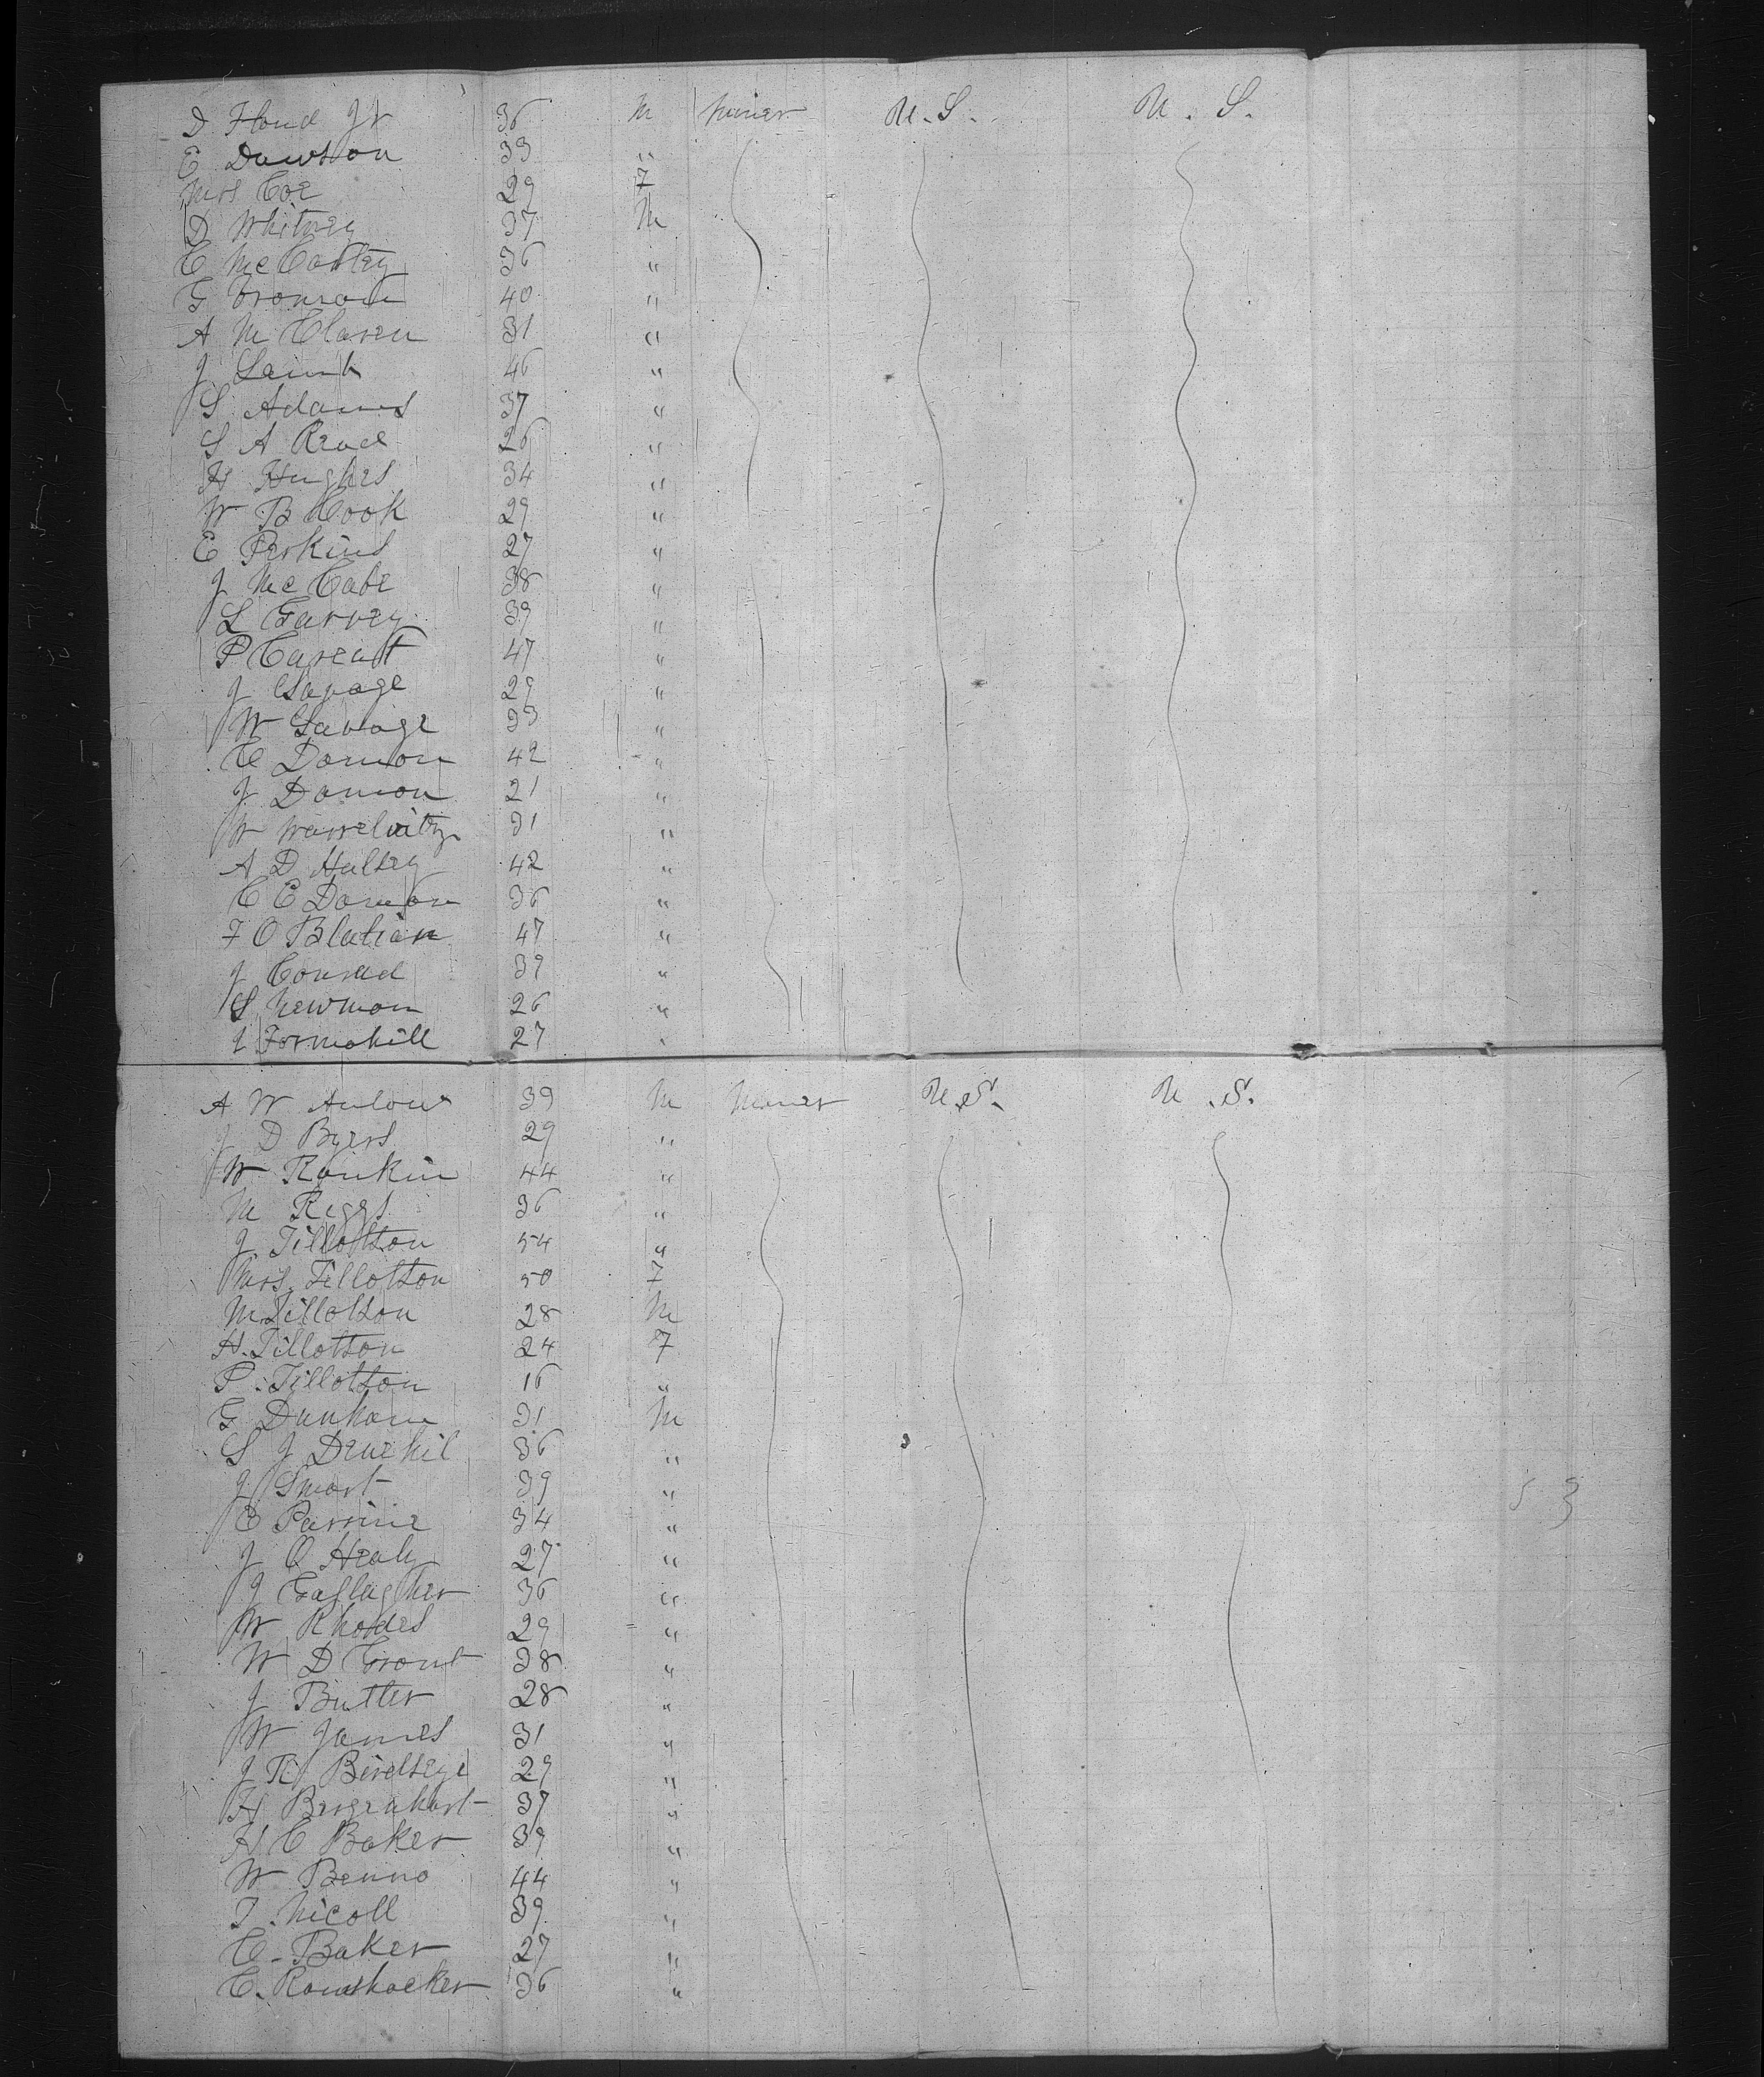 D Flood Jr 36 M Miner U.S. U.S.
E Dawson 33 "
Mrs Coe 29 F
D Whitney 37 M
C McCarley 36 "
G Bronson 40 "
A McClaren 31 "
J Lamb 46 "
S Adams 37 "
S A Read 26 "
H Hughes 34 "
W B Cook 29 "
E Perkins 27 "
J McCabe 38 "
L Garvey 39 "
P 47 "
J Savage 29 "
W Savage 33 "
C Damon 42 "
J Damon 21 "
W 31 "
A D Halsey 42 "
C E Damon 36 "
F O 47 "
J Conrad 39 "
S Newman 26 "
27 "
A W 39 M Miner U.S. U.S.
J D Byers 29 "
W Rankin 44 "
M Riggs 36 "
J Tillotson 54 "
Mrs. Tillotson 50 F
M Tillotson 28 M
H. Tillotson 24 F
P. Tillotson 16 "
G Dunham 31 M
S J 36 "
J Smart 39 "
C Perrine 34 "
J O Healy 27 "
J Gallagher 36 "
W Rhodes 29 "
W D Grant 38 "
J Butler 28 "
W James 31 "
J R Birdseye 29 "
H 37 "
H C Baker 39 "
W Benno 44 "
T. Nicoll 39 "
C. Baker 27 "
C. 36 "